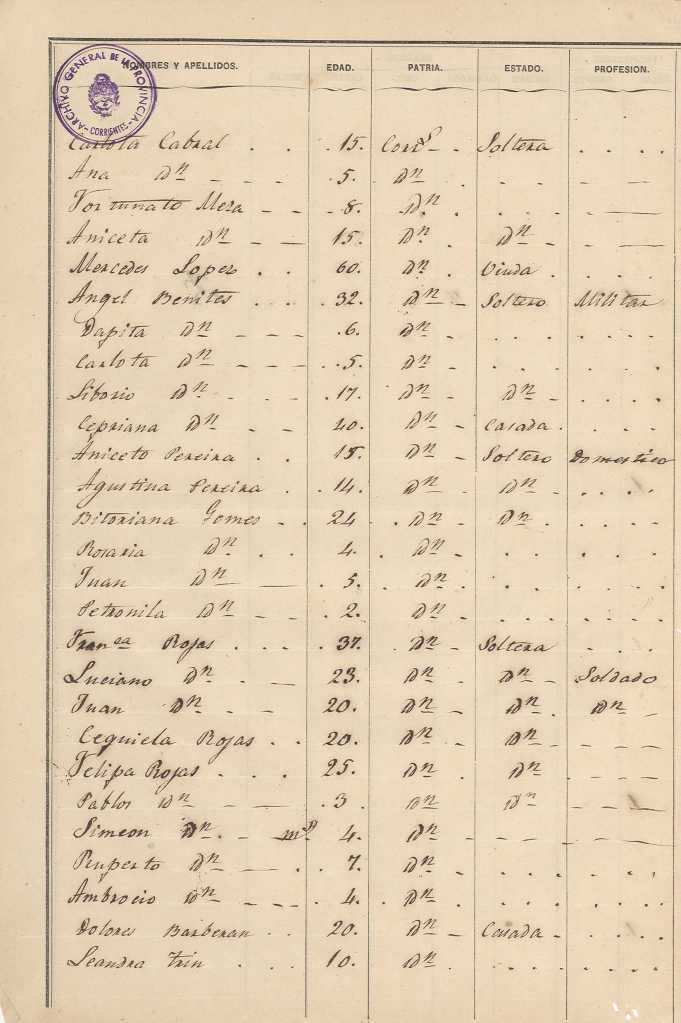 NOMBRES Y APELLIDOS. EDAD. PATRIA. ESTADO. PROFESION.
ARCHIVO GENERAL DE LA PROVINCIA - CORRIENTES -
Carlota Cabral 15. Corr.s Soltera
Ana Dn 5. Dn
Fortunato Meza 8. Dn
Aniceta Dn 15. Dn Dn
Mercedes Lopez 60. Dn Viuda
Angel Benites 32. Dn Soltero Militar
Dapita Dn 6. Dn
Carlota Dn 5. Dn
Liborio Dn 17. Dn Dn
Cepriana Dn 40. Dn Casada
Aniceto Pereira 15. Dn Soltero Domestico
Agustina Pereira 14. Dn Dn
Bitoriana Gomes 24 Dn Dn
Rosaria Dn 4. Dn
Juan Dn 5. Dn
Petronila Dn 2. Dn
Franca Rojas 37. Dn Soltera
Luciano Dn 23. Dn Dn Soldado
Juan Dn 20. Dn Dn Dn
Cequiela Rojas 20. Dn Dn
Felipa Rojas 25. Dn Dn
Pablos Dn 3 Dn Dn
Simeon Dn 4. Dn
Ruperto Dn 7. Dn
Ambrocio Dn 4. Dn
Dolores Barberan 20. Dn Casada
Leandra Frin 10. Dn